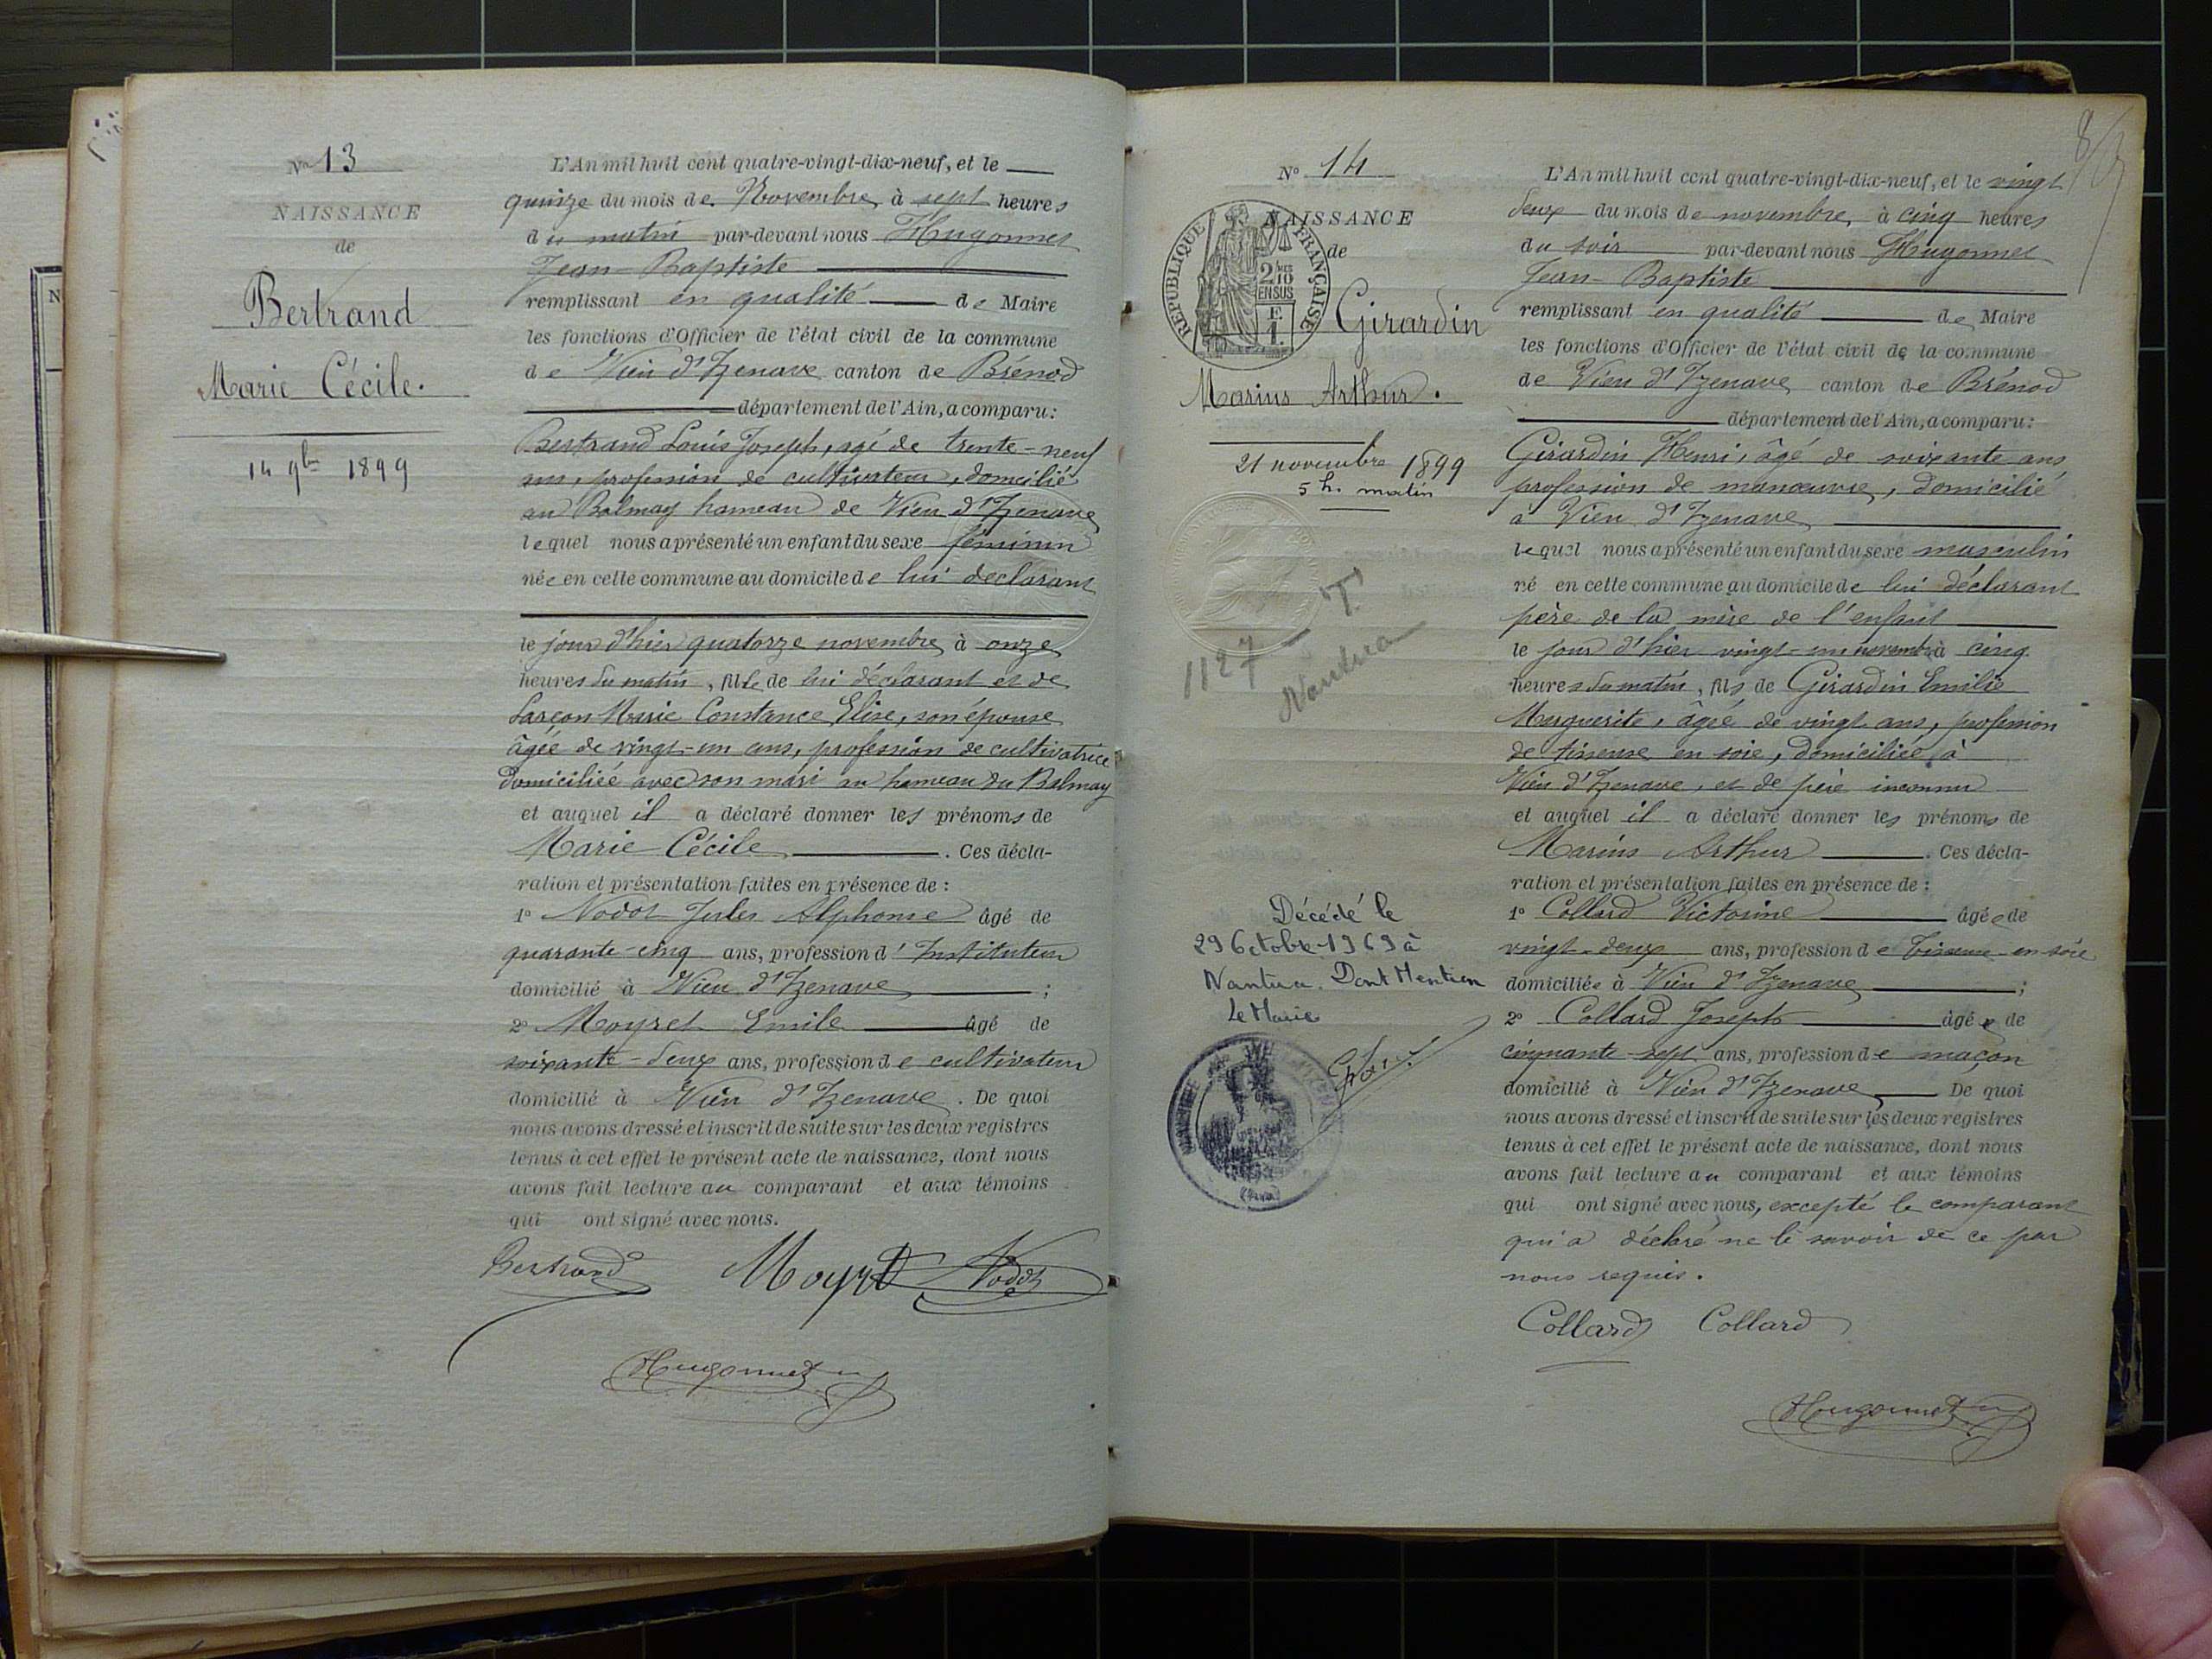 No 13
NAISSANCE
de
Bertrand
Marie Cécile.
14 9bre 1899
L'An mil huit cent quatre-vingt-dix-neuf, et le
quinze du mois de Novembre, à sept heures
du matin par-devant nous Hugonnet
Jean-Baptiste
remplissant en qualité de Maire
les fonctions d'Officier de l'état civil de la commune
de Vieu d'Izenave canton de Brénod
département de l'Ain, a comparu:
Bertrand Louis Joseph, agé de trente-neuf
ans, profession de cultivateur, domicilié
au Balmay hameau de Vieu d'Izenave
lequel nous a présenté un enfant du sexe féminin
née en cette commune au domicile de lui déclarant
le jour d'hier quatorze novembre à onze
heures du matin, fille de lui déclarant et de
Lançon Marie Constance Elise, son épouse
âgée de vingt-un ans, profession de cultivatrice
domiciliée avec son mari au hameau du Balmay
et auquel il a déclaré donner les prénoms de
Marie Cécile. Ces décla-
ration et présentation faites en présence de :
1o Nodot Jules Alphonse âgé de
quarante-cinq ans, profession d'Instituteur
domicilié à Vieu d'Izenave ;
2o Moyret Emile âgé de
soixante-deux ans, profession de cultivateur
domicilié à Vieu d'Izenave. De quoi
nous avons dressé et inscrit de suite sur les deux registres
tenus à cet effet le présent acte de naissance, dont nous
avons fait lecture au comparant et aux témoins
qui ont signé avec nous.
Bertrand Moyret Nodot
Hugonnet
8
No 14
NAISSANCE
de
RÉPUBLIQUE FRANÇAISE
2/10 EN SUS
Girardin
Marius Arthur.
21 novembre 1899
5 h. matin
1127 - T.
Nantua
Décédé le
29 Octobre 1969 à
Nantua. Dont Mention
Le Maire
L'An mil huit cent quatre-vingt-dix-neuf, et le vingt
deux du mois de novembre, à cinq heures
du soir par-devant nous Hugonnet
Jean-Baptiste
remplissant en qualité de Maire
les fonctions d'Officier de l'état civil de la commune
de Vieu d'Izenave canton de Brénod
département de l'Ain, a comparu:
Girardin Henri, âgé de soixante ans
profession de manœuvre, domicilié
à Vieu d'Izenave
lequel nous a présenté un enfant du sexe masculin
né en cette commune au domicile de lui déclarant
père de la mère de l'enfant
le jour d'hier vingt-un novembre à cinq
heures du matin, fils de Girardin Emilie
Marguerite, âgée de vingt ans, profession
de tisseuse en soie, domiciliée à
Vieu d'Izenave, et de père inconnu
et auquel il a déclaré donner les prénoms de
Marius Arthur. Ces décla-
ration et présentation faites en présence de :
1o Collard Victorine âgée de
vingt-deux ans, profession de Tisseuse en soie
domiciliée à Vieu d'Izenave ;
2o Collard Joseph âgé de
cinquante-sept ans, profession de maçon
domicilié à Vieu d'Izenave De quoi
nous avons dressé et inscrit de suite sur les deux registres
tenus à cet effet le présent acte de naissance, dont nous
avons fait lecture au comparant et aux témoins
qui ont signé avec nous, excepté le comparant
qui a déclaré ne le savoir de ce par
nous requis.
Collard Collard
Hugonnet